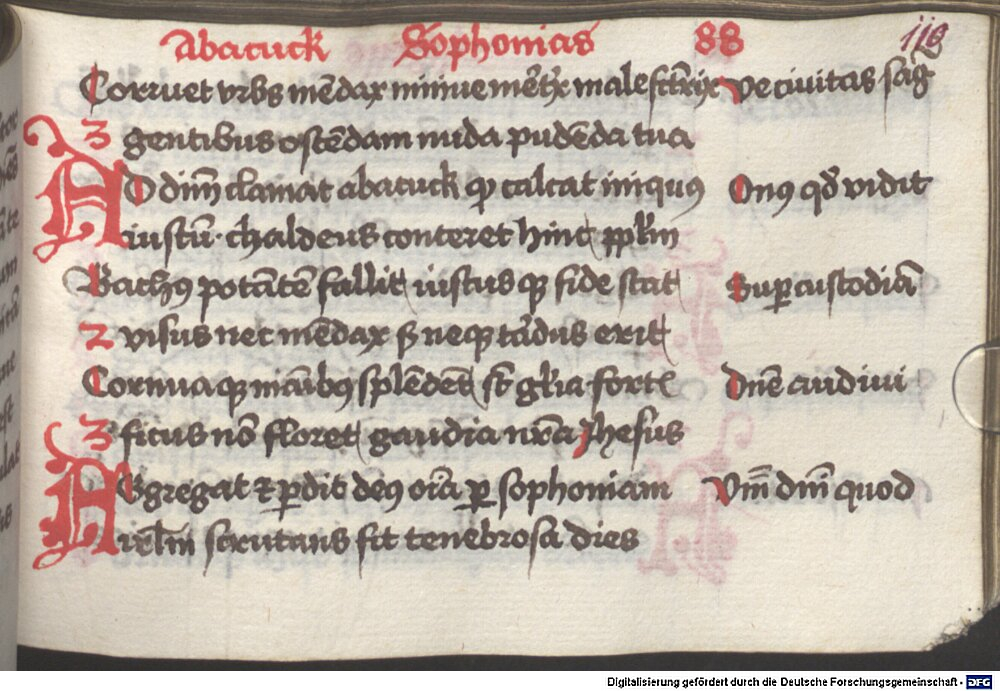 Abacuck Sophonias 88 118
Corruet vrbs mēdax niniue mēt͛x malefct̄rix Ve ciuitas sāg
3 gentibus ostēdam nuda pudēda tua
AD dn̄m clamat abacuck qꝫ calcat iniquꝰ Onꝰ qd̄ vidit
iustū· chaldeus conteret hinc ppl̄m
Bachꝰ potātē fallit iustus qꝫ fide stat Suꝑ custodiā
2 visus nec mēdax ß neqꝫ tardus erit
Cornua qꝫ manibꝰ splēdēt st̄ gl̄ia fortꝭ Dn̄e audiui
3 ficus nō floret gaudia nr̄a Jhesus
AGgregat ⁊ ꝑdit deꝰ oīa ꝑ sophoniam Vm̄ dn̄i quod
irl̄m scrutans fit tenebrosa dies
Digitalisierung gefördert durch die Deutsche Forschungsgemeinschaft - DFG